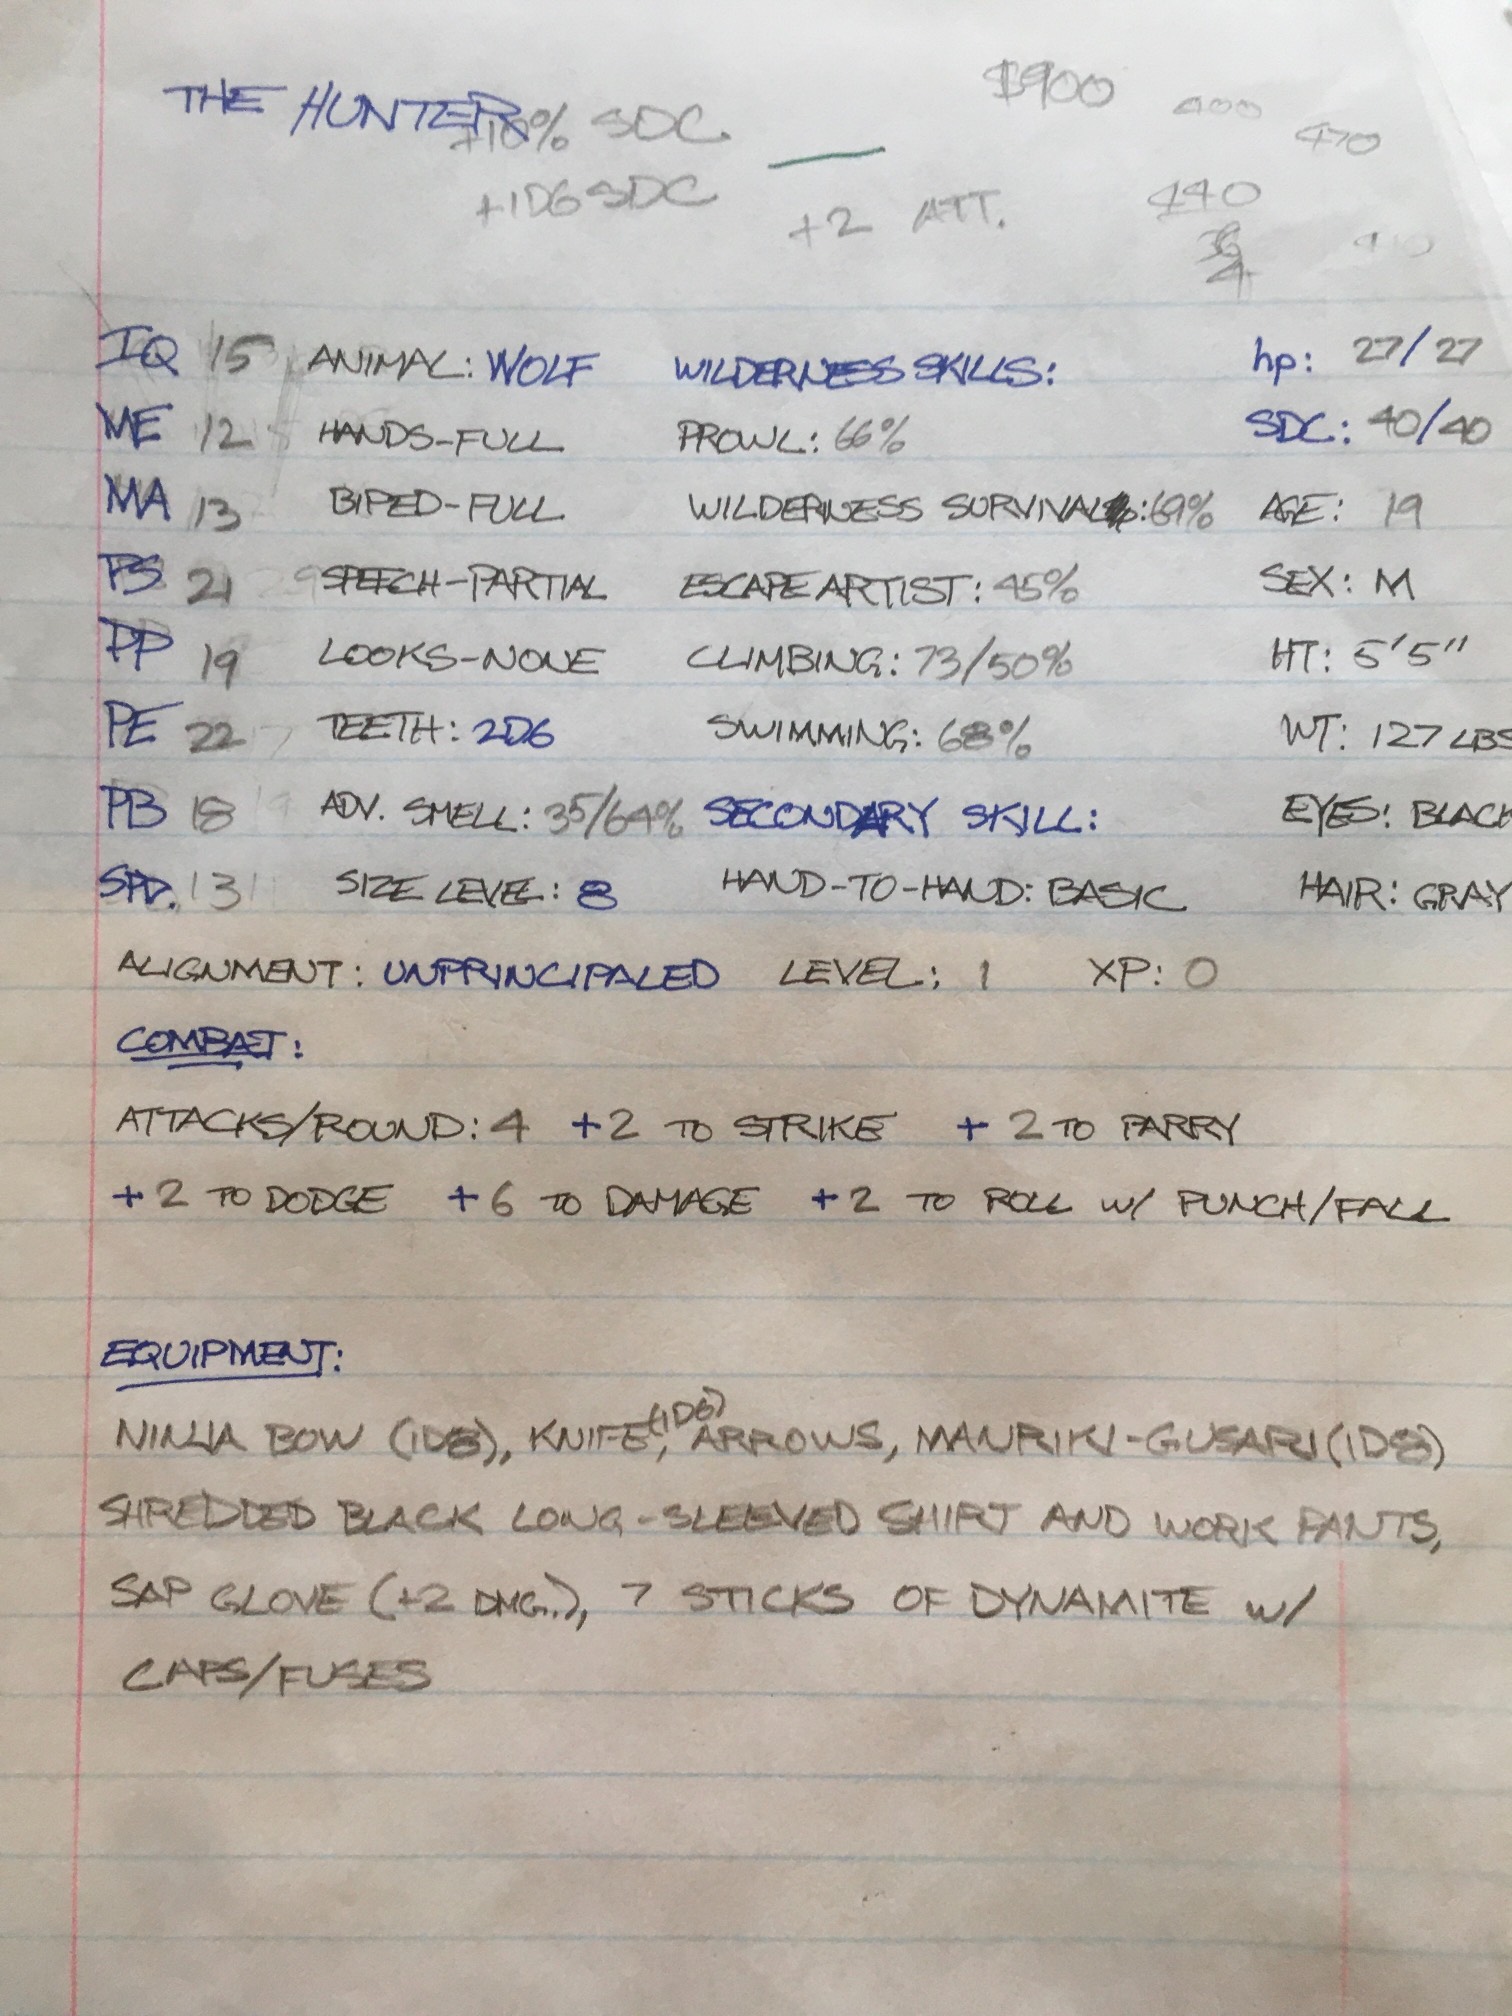 THE HUNTER
$900
400
+10% SDC
470
+1D6 SDC
+2 ATT.
440
36
4
IQ 15 ANIMAL: WOLF WILDERNESS SKILLS: hp: 27/27
ME 12 HANDS-FULL PROWL: 66% SDC: 40/40
MA 13 BIPED-FULL WILDERNESS SURVIVAL: 69% AGE: 19
PS 21 SPEECH-PARTIAL ESCAPE ARTIST: 45% SEX: M
PP 19 LOOKS-NONE CLIMBING: 73/50% HT: 5'5"
PE 22 TEETH: 2D6 SWIMMING: 68% WT: 127 LBS
PB 18 ADV. SMELL: 35/64% SECONDARY SKILL: EYES: BLACK
SPD. 13 SIZE LEVEL: 8 HAND-TO-HAND: BASIC HAIR: GRAY
ALIGNMENT: UNPRINCIPALED LEVEL: 1 XP: 0
COMBAT:
ATTACKS/ROUND: 4 +2 TO STRIKE +2 TO PARRY
+2 TO DODGE +6 TO DAMAGE +2 TO ROLL W/ PUNCH/FALL
EQUIPMENT:
NINJA BOW (1D8), KNIFE (1D6), ARROWS, MANRIKI-GUSARI (1D8)
SHREDDED BLACK LONG-SLEEVED SHIRT AND WORK PANTS,
SAP GLOVE (+2 DMG.), 7 STICKS OF DYNAMITE W/
CAPS/FUSES